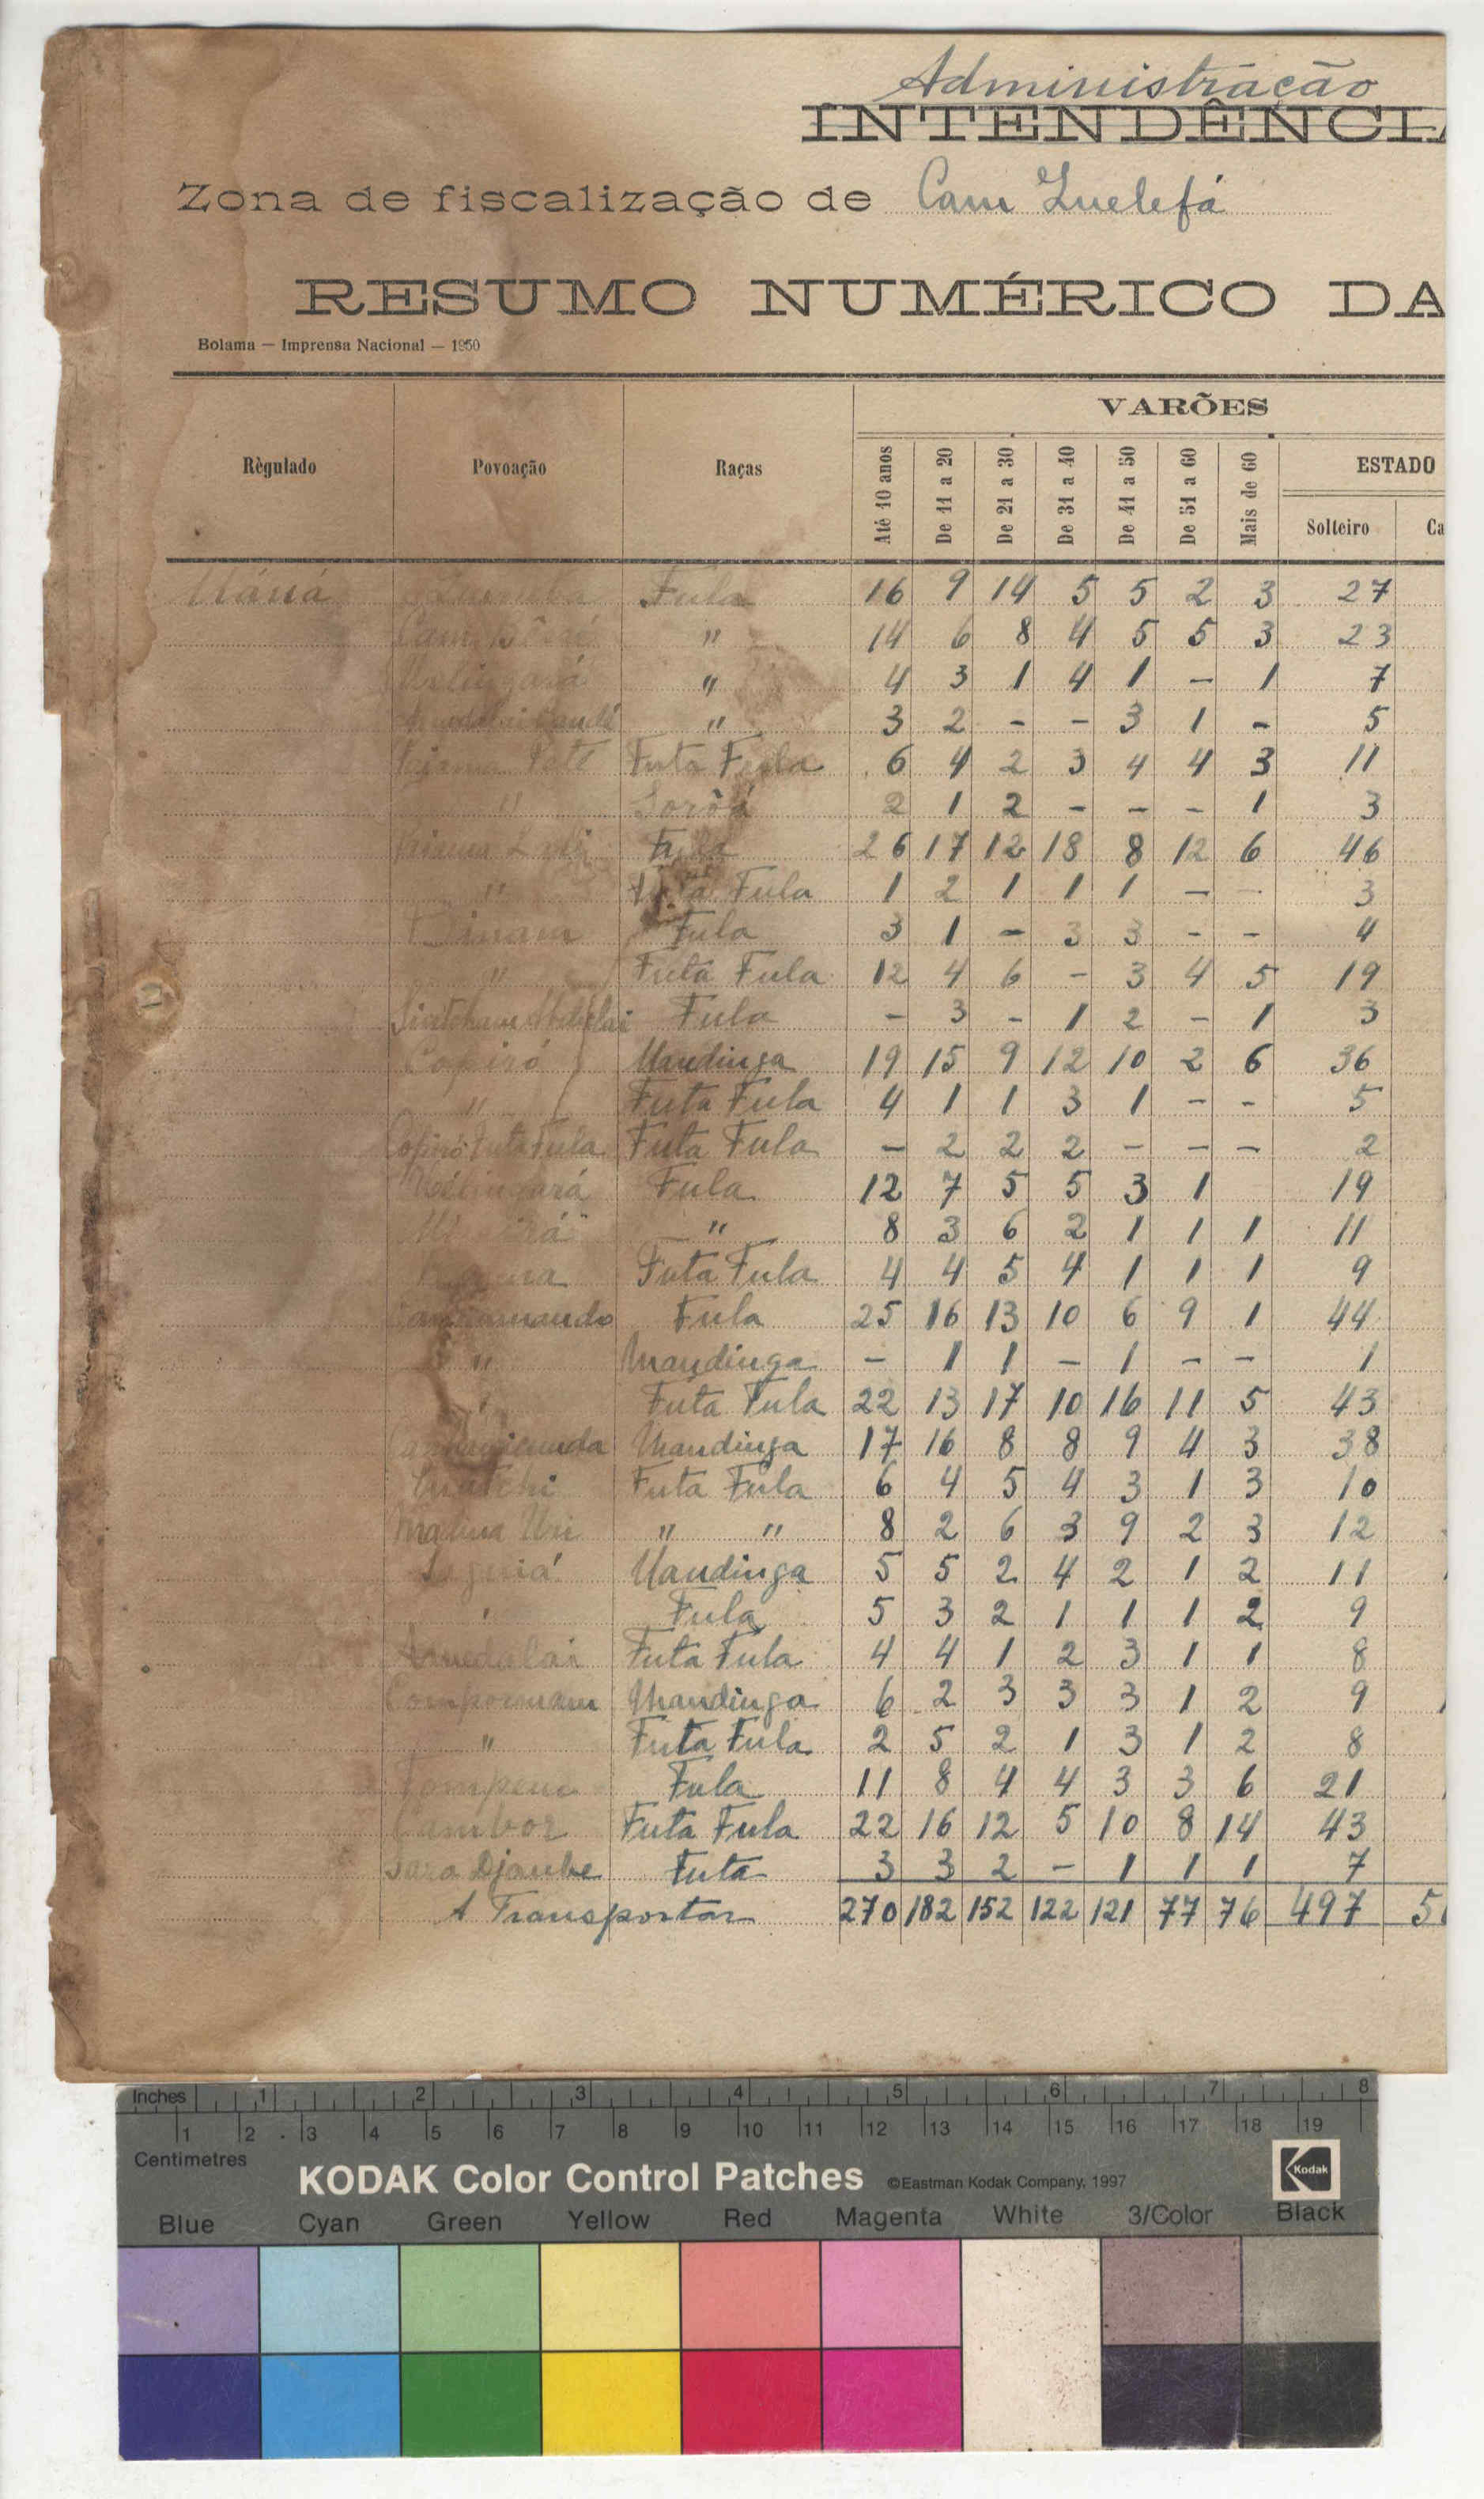 Administração
INTENDÊNCI
Zona de fiscalização de Cam Quelefá
RESUMO NUMÉRICO DA
Bolama — Imprensa Nacional — 1950
VARÕES
Règulado Povoação Raças Até 10 anos De 11 a 20 De 21 a 30 De 31 a 40 De 41 a 50 De 51 a 60 Mais de 60 ESTADO
Solteiro Ca
Maná Fula 16 9 14 5 5 2 3 27
" 14 6 8 4 5 5 3 23
" 4 3 1 4 1 - 1 7
" 3 2 - - 3 1 - 5
Futa Fula 6 4 2 3 4 4 3 11
" 2 1 2 - - - 1 3
Fula 26 17 12 18 8 12 6 46
" Futa Fula 1 2 1 1 1 - 3
Fula 3 1 - 3 3 - - 4
" Futa Fula 12 4 6 - 3 4 5 19
Fula - 3 - 1 2 - 1 3
Copiró Mandinga 19 15 9 12 10 2 6 36
" Futa Fula 4 1 1 3 1 - - 5
Copiró Futa Fula Futa Fula - 2 2 2 - - - 2
Fula 12 7 5 5 3 1 19
" 8 3 6 2 1 1 1 11
Futa Fula 4 4 5 4 1 1 1 9
Fula 25 16 13 10 6 9 1 44
" Mandinga - 1 1 - 1 - - 1
" Futa Fula 22 13 17 10 16 11 5 43
Mandinga 17 16 8 8 9 4 3 38
Futa Fula 6 4 5 4 3 1 3 10
" " 8 2 6 3 9 2 3 12
Mandinga 5 5 2 4 2 1 2 11
" Fula 5 3 2 1 1 1 2 9
Futa Fula 4 4 1 2 3 1 1 8
Mandinga 6 2 3 3 3 1 2 9
" Futa Fula 2 5 2 1 3 1 2 8
Fula 11 8 4 4 3 3 6 21
Cambor Futa Fula 22 16 12 5 10 8 14 43
Sara Djaube Futa 3 3 2 - 1 1 1 7
A Transportar 270 182 152 122 121 77 76 497 5
Inches 1 2 3 4 5 6 7 8
1 2 3 4 5 6 7 8 9 10 11 12 13 14 15 16 17 18 19
Centimetres
KODAK Color Control Patches ©Eastman Kodak Company, 1997 Kodak
Blue Cyan Green Yellow Red Magenta White 3/Color Black